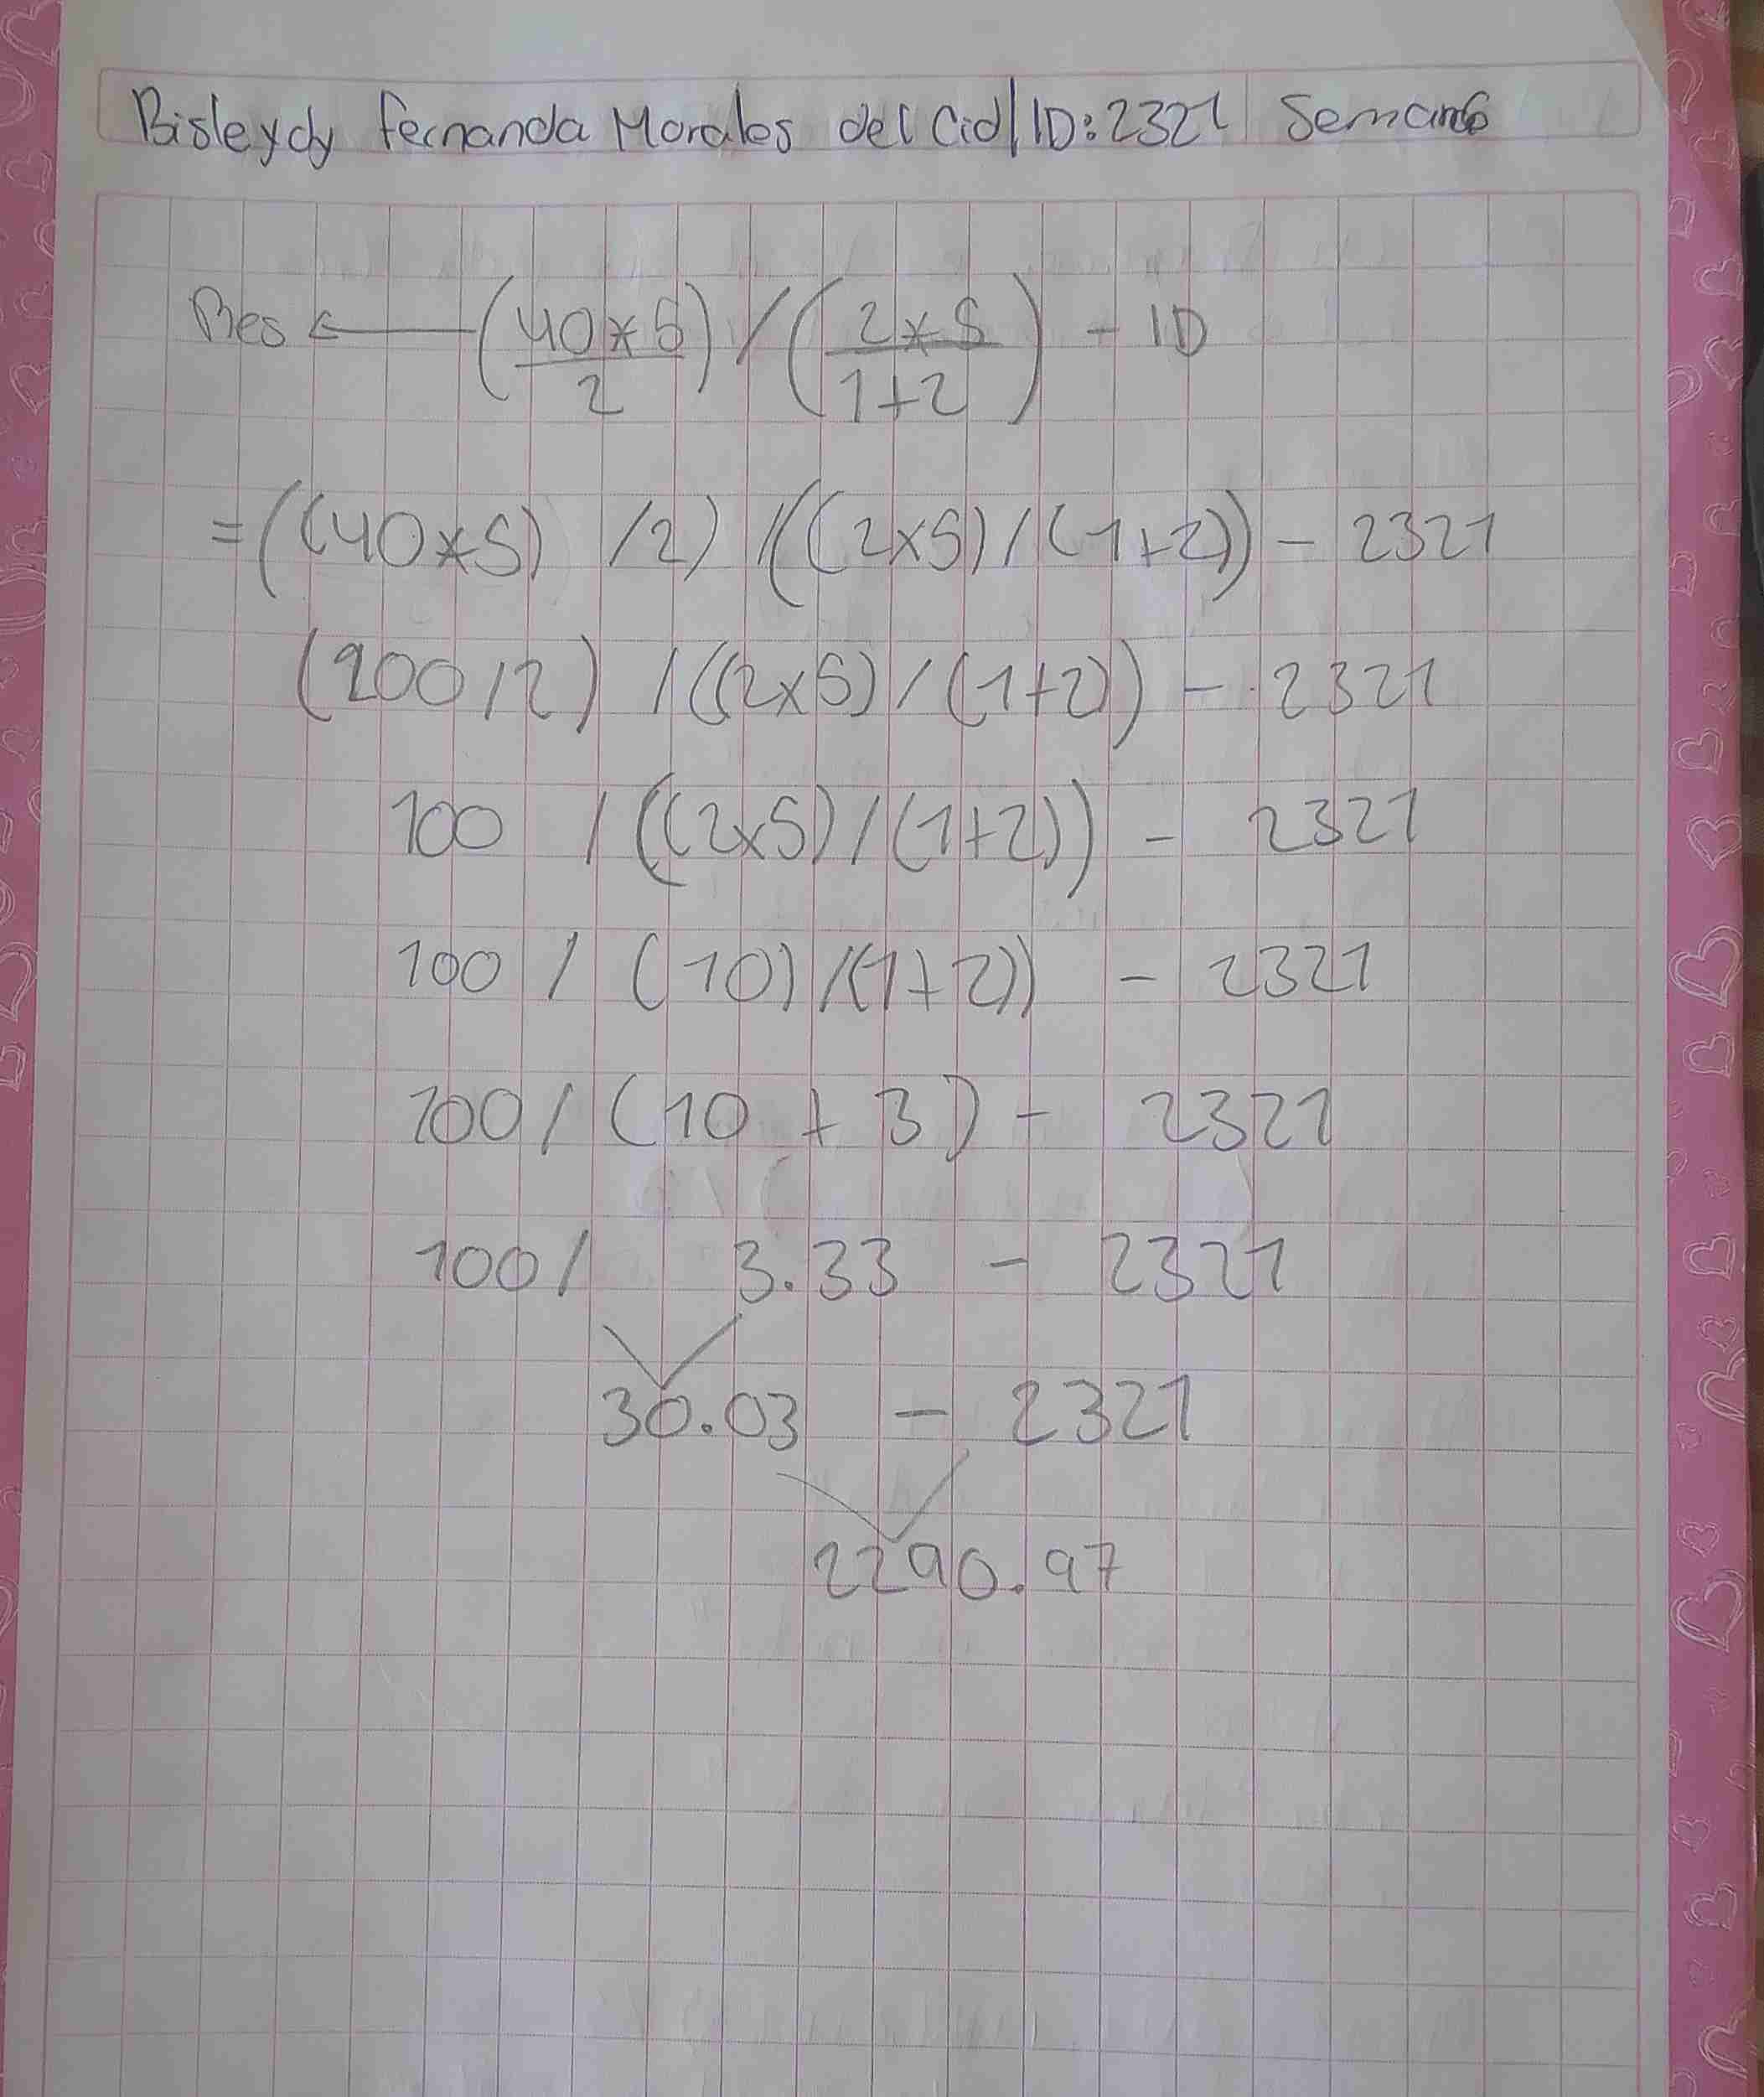 Bisleydy Fernanda Morales del Cid | ID: 2321 | Semana 6
Res ← (40*5 / 2) / (2*5 / 1+2) - ID
= ((40*5) /2) / ((2x5) / (1+2)) - 2321
(200/2) / ((2x5) / (1+2)) - 2321
100 / ((2x5) / (1+2)) - 2321
100 / (10) /(1+2)) - 2321
100 / (10 + 3) - 2321
100 / 3.33 - 2321
30.03 - 2321
2290.97